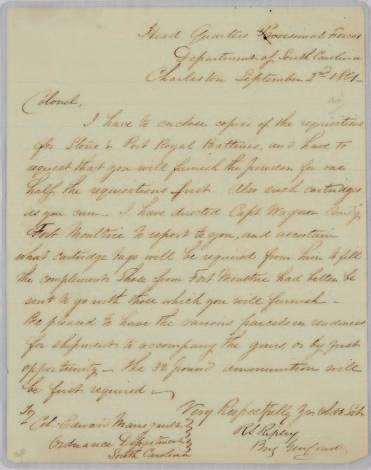 Head Quarters Provisional Forces
Department of South Carolina
Charleston September 2nd 1861
Colonel,
I have to enclose copies of the requisitions
for Stono & Port Royal Batteries, and have to
request that you will furnish the powder for one
half the requisitions first. Also such cartridges
as you can - I have directed Capt Wagner
Fort Moultrie to report to you, and ascertain
what cartridge bags will be required from him to fill
the complement. Those from Fort Moultrie had better be
sent to go with those which you will furnish -
Be pleased to have the various parcels in readiness
for shipment to accompany the guns, or by first
opportunity - The 32 pound ammunition will
be first required -
Very Respectfully Yr Obt Svt
To
Col. Edward Manigault
R S Ripley
Ordnance Department
Brig Gen
South Carolina